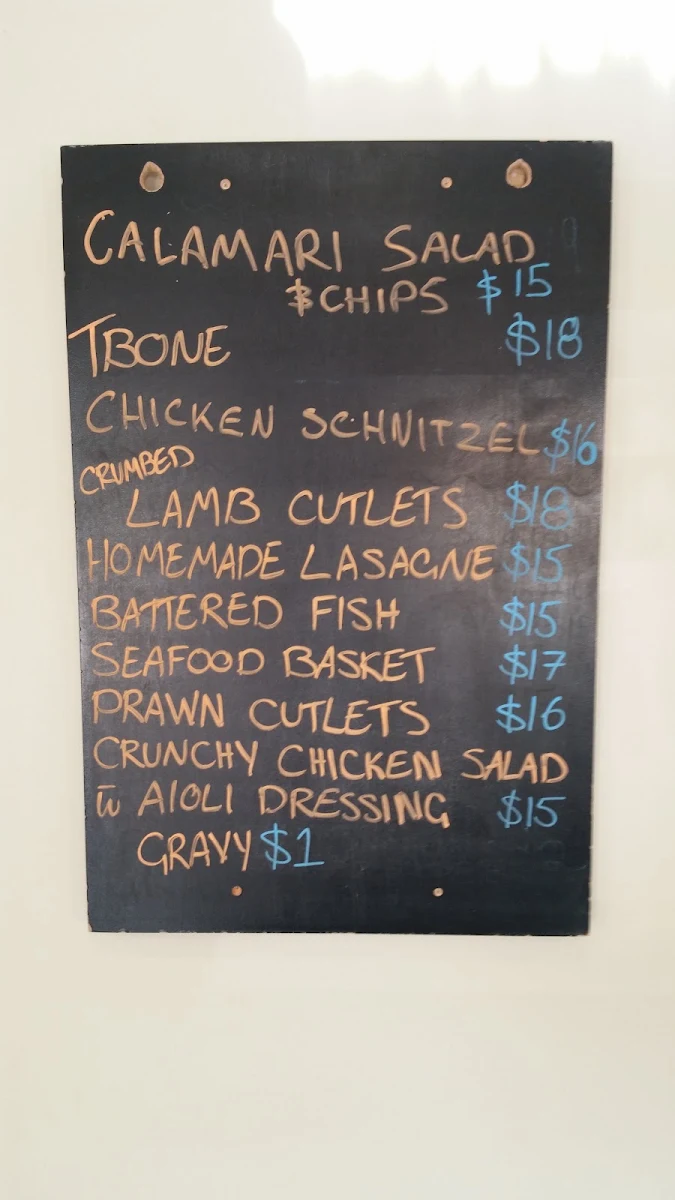 CALAMARI SALAD
& CHIPS $15
TBONE $18
CHICKEN SCHNITZEL $16
CRUMBED
LAMB CUTLETS $18
HOMEMADE LASAGNE $15
BATTERED FISH $15
SEAFOOD BASKET $17
PRAWN CUTLETS $16
CRUNCHY CHICKEN SALAD
w̄ AIOLI DRESSING $15
GRAVY $1